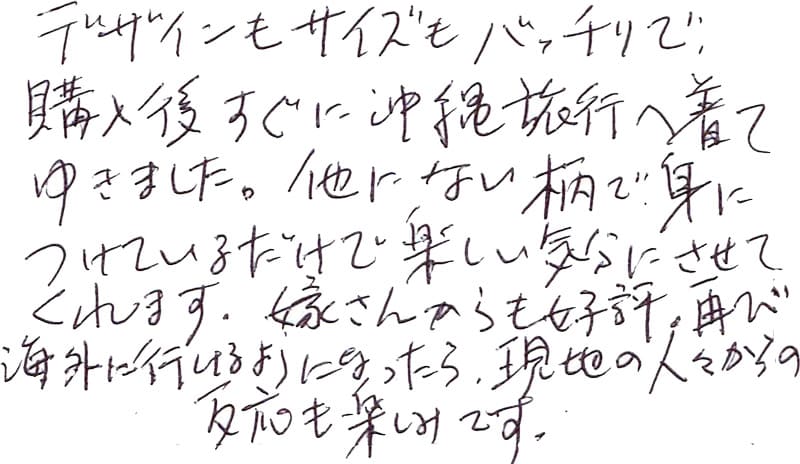 デザインもサイズもバッチリで、
購入後すぐに沖縄旅行へ着て
ゆきました。他にない柄で身に
つけているだけで楽しい気分にさせて
くれます。嫁さんからも好評。再び
海外に行けるようになったら、現地の人々からの
反応も楽しみです。